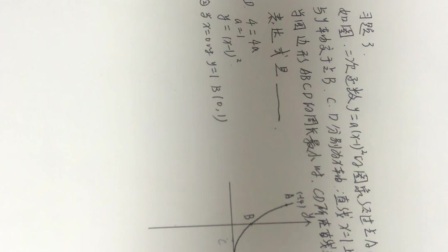 习题3.
如图,二次函数y=a(x-1)²的图象经过点A
与y轴交于点B.C、D分别为x轴、直线x=1上
当四边形ABCD的周长最小时,CD所在直线
表达式是______.
① 4=4a
a=1
y=(x-1)²
当x=0时y=1 B(0,1)
A
B
C